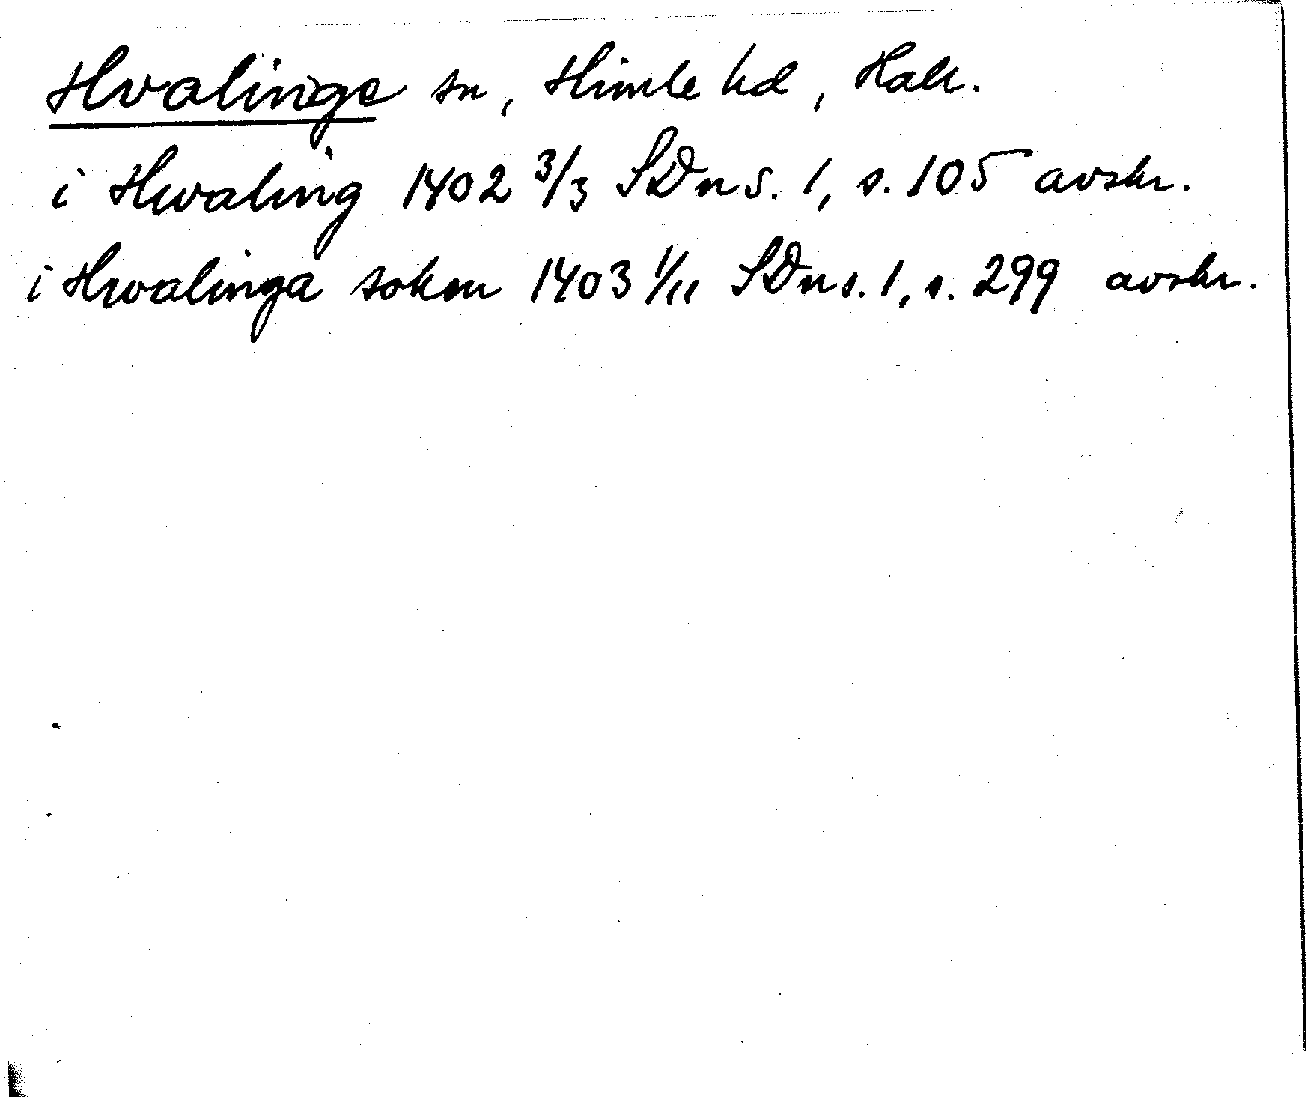 Hvalinge sn, Himle hd, Hall.
i Hwaling 1402 3/3 SDns. 1, s. 105 avskr.
i Hwalinga soken 1403 1/11 SDns. 1, s. 299 avskr.